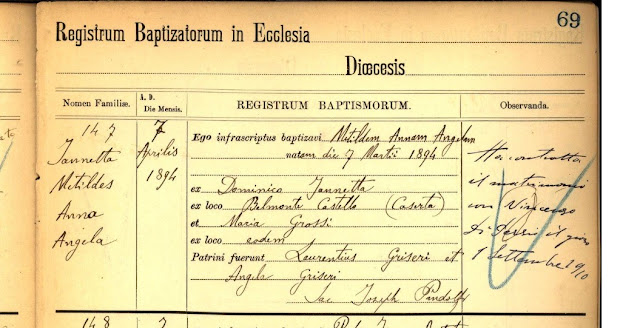 69
Registrum Baptizatorum in Ecclesia
Diœcesis
Nomen Familiæ.
A. D.
Die Mensis.
REGISTRUM BAPTISMORUM.
Observanda.
147
Iannetta
Matildes
Anna
Angela
7
Aprilis
1894
Ego infrascriptus baptizavi Matildem Annam Angelam
natam die 7 Martii 1894
ex Dominico Iannetta
ex loco Belmonte Castello (Caserta)
et Maria Grossi
ex loco eodem
Patrini fuerunt Laurentius Griseri et
Angela Griseri
Sac Joseph
Ha contratto
il matrimonio
con Vincenzo
il
1 Settembre 1910
148